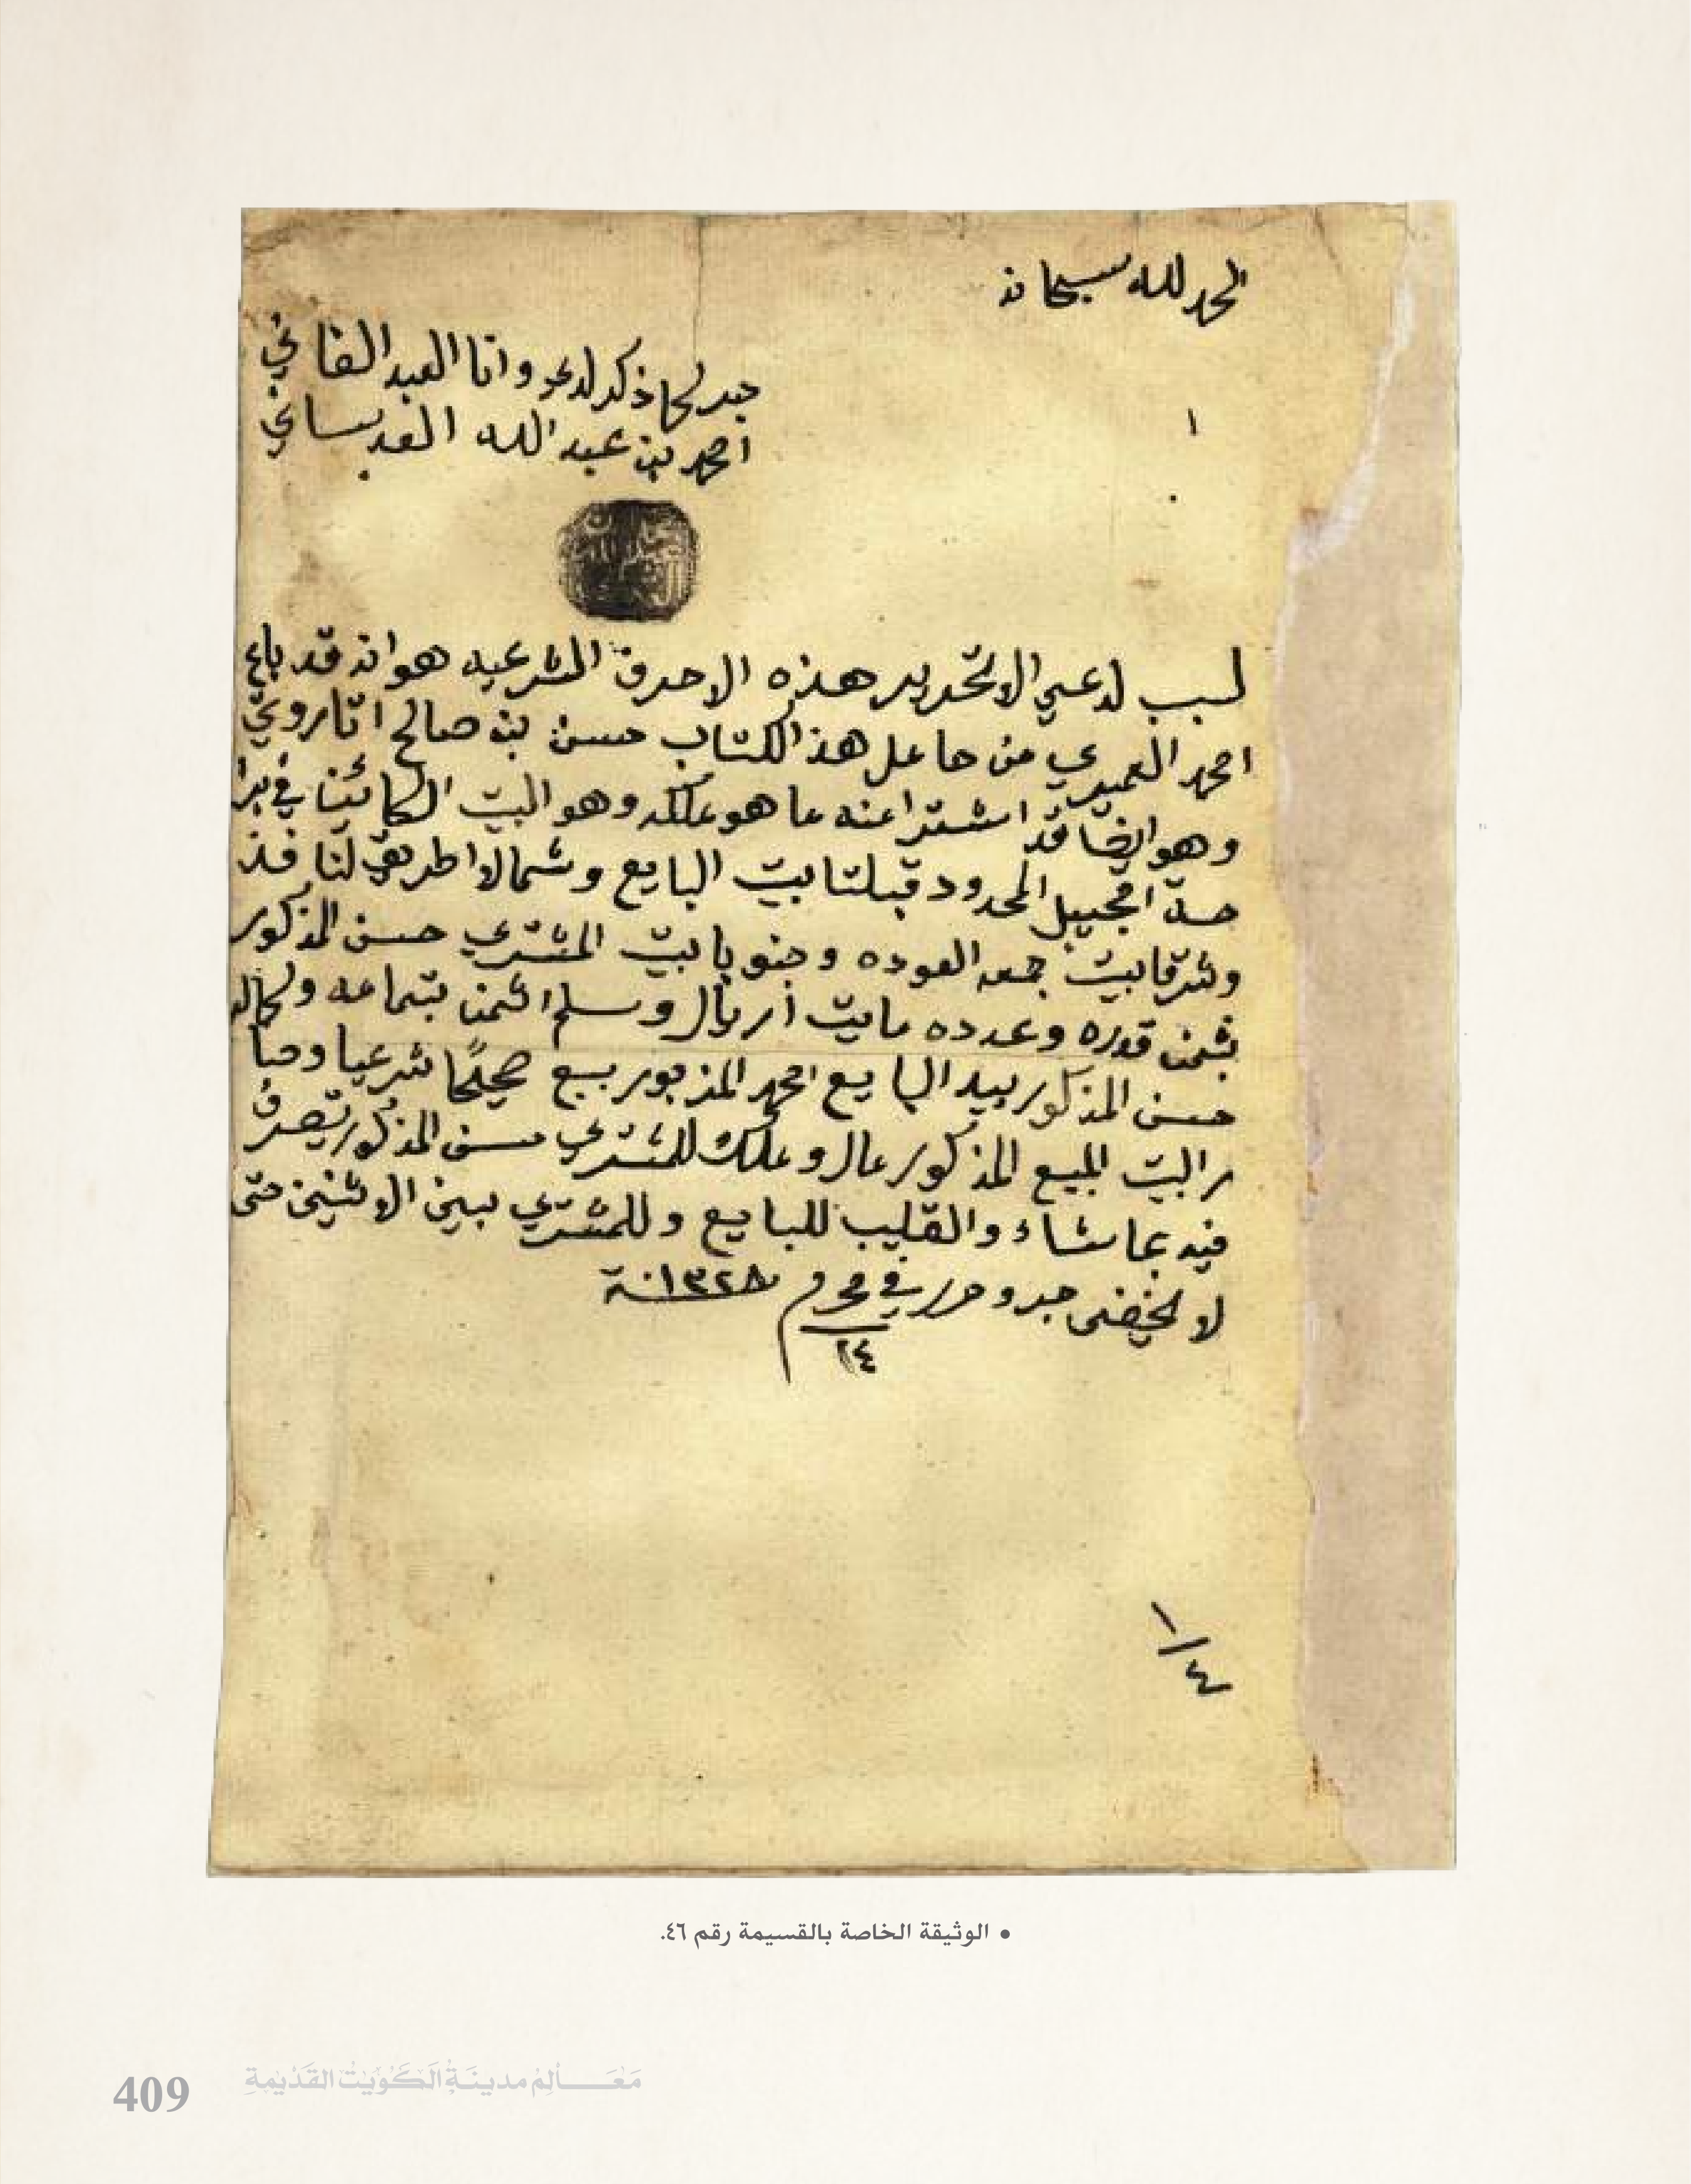 الحمد لله سبحانه
جرى كما ذكر لدي وانا العبد الفاني
احمد بن عبدالله العدساني
١
السبب الداعي الا تحرير هذه الاحرف الشرعيه هو انه قد باع
احمد العميري من حامل هذا الكتاب حسن بن صالح
وهو ايضا قد اشترا منه ما هو ملكه وهو البيت الكائنا في
المحدود قبلتا بيت البايع وشمالا اطريق النافذ
وشرقا بيت جمعه العوده وجنوبا بيت المشتري حسن المذكور
بثمن قدره وعدده مايت اريال وسلم اثمن بتمامه وكماله
حسن المذكور بيد البايع احمد المزبور بيع صحيحًا شرعيا وصا
ر البيت المبيع المذكور مال وملك للمشتري حسن المذكور يتصرف
فيه بما شاء والقليب للبايع وللمشتري بين الاثنين حتى
لا يخفى جرى وحرر في محرم سنة ١٣٢٨
٢٤
١/٤
• الوثيقة الخاصة بالقسيمة رقم ٤٦.
409 مَعَالِم مدينَة الكُوَيت القَدْيمةِ